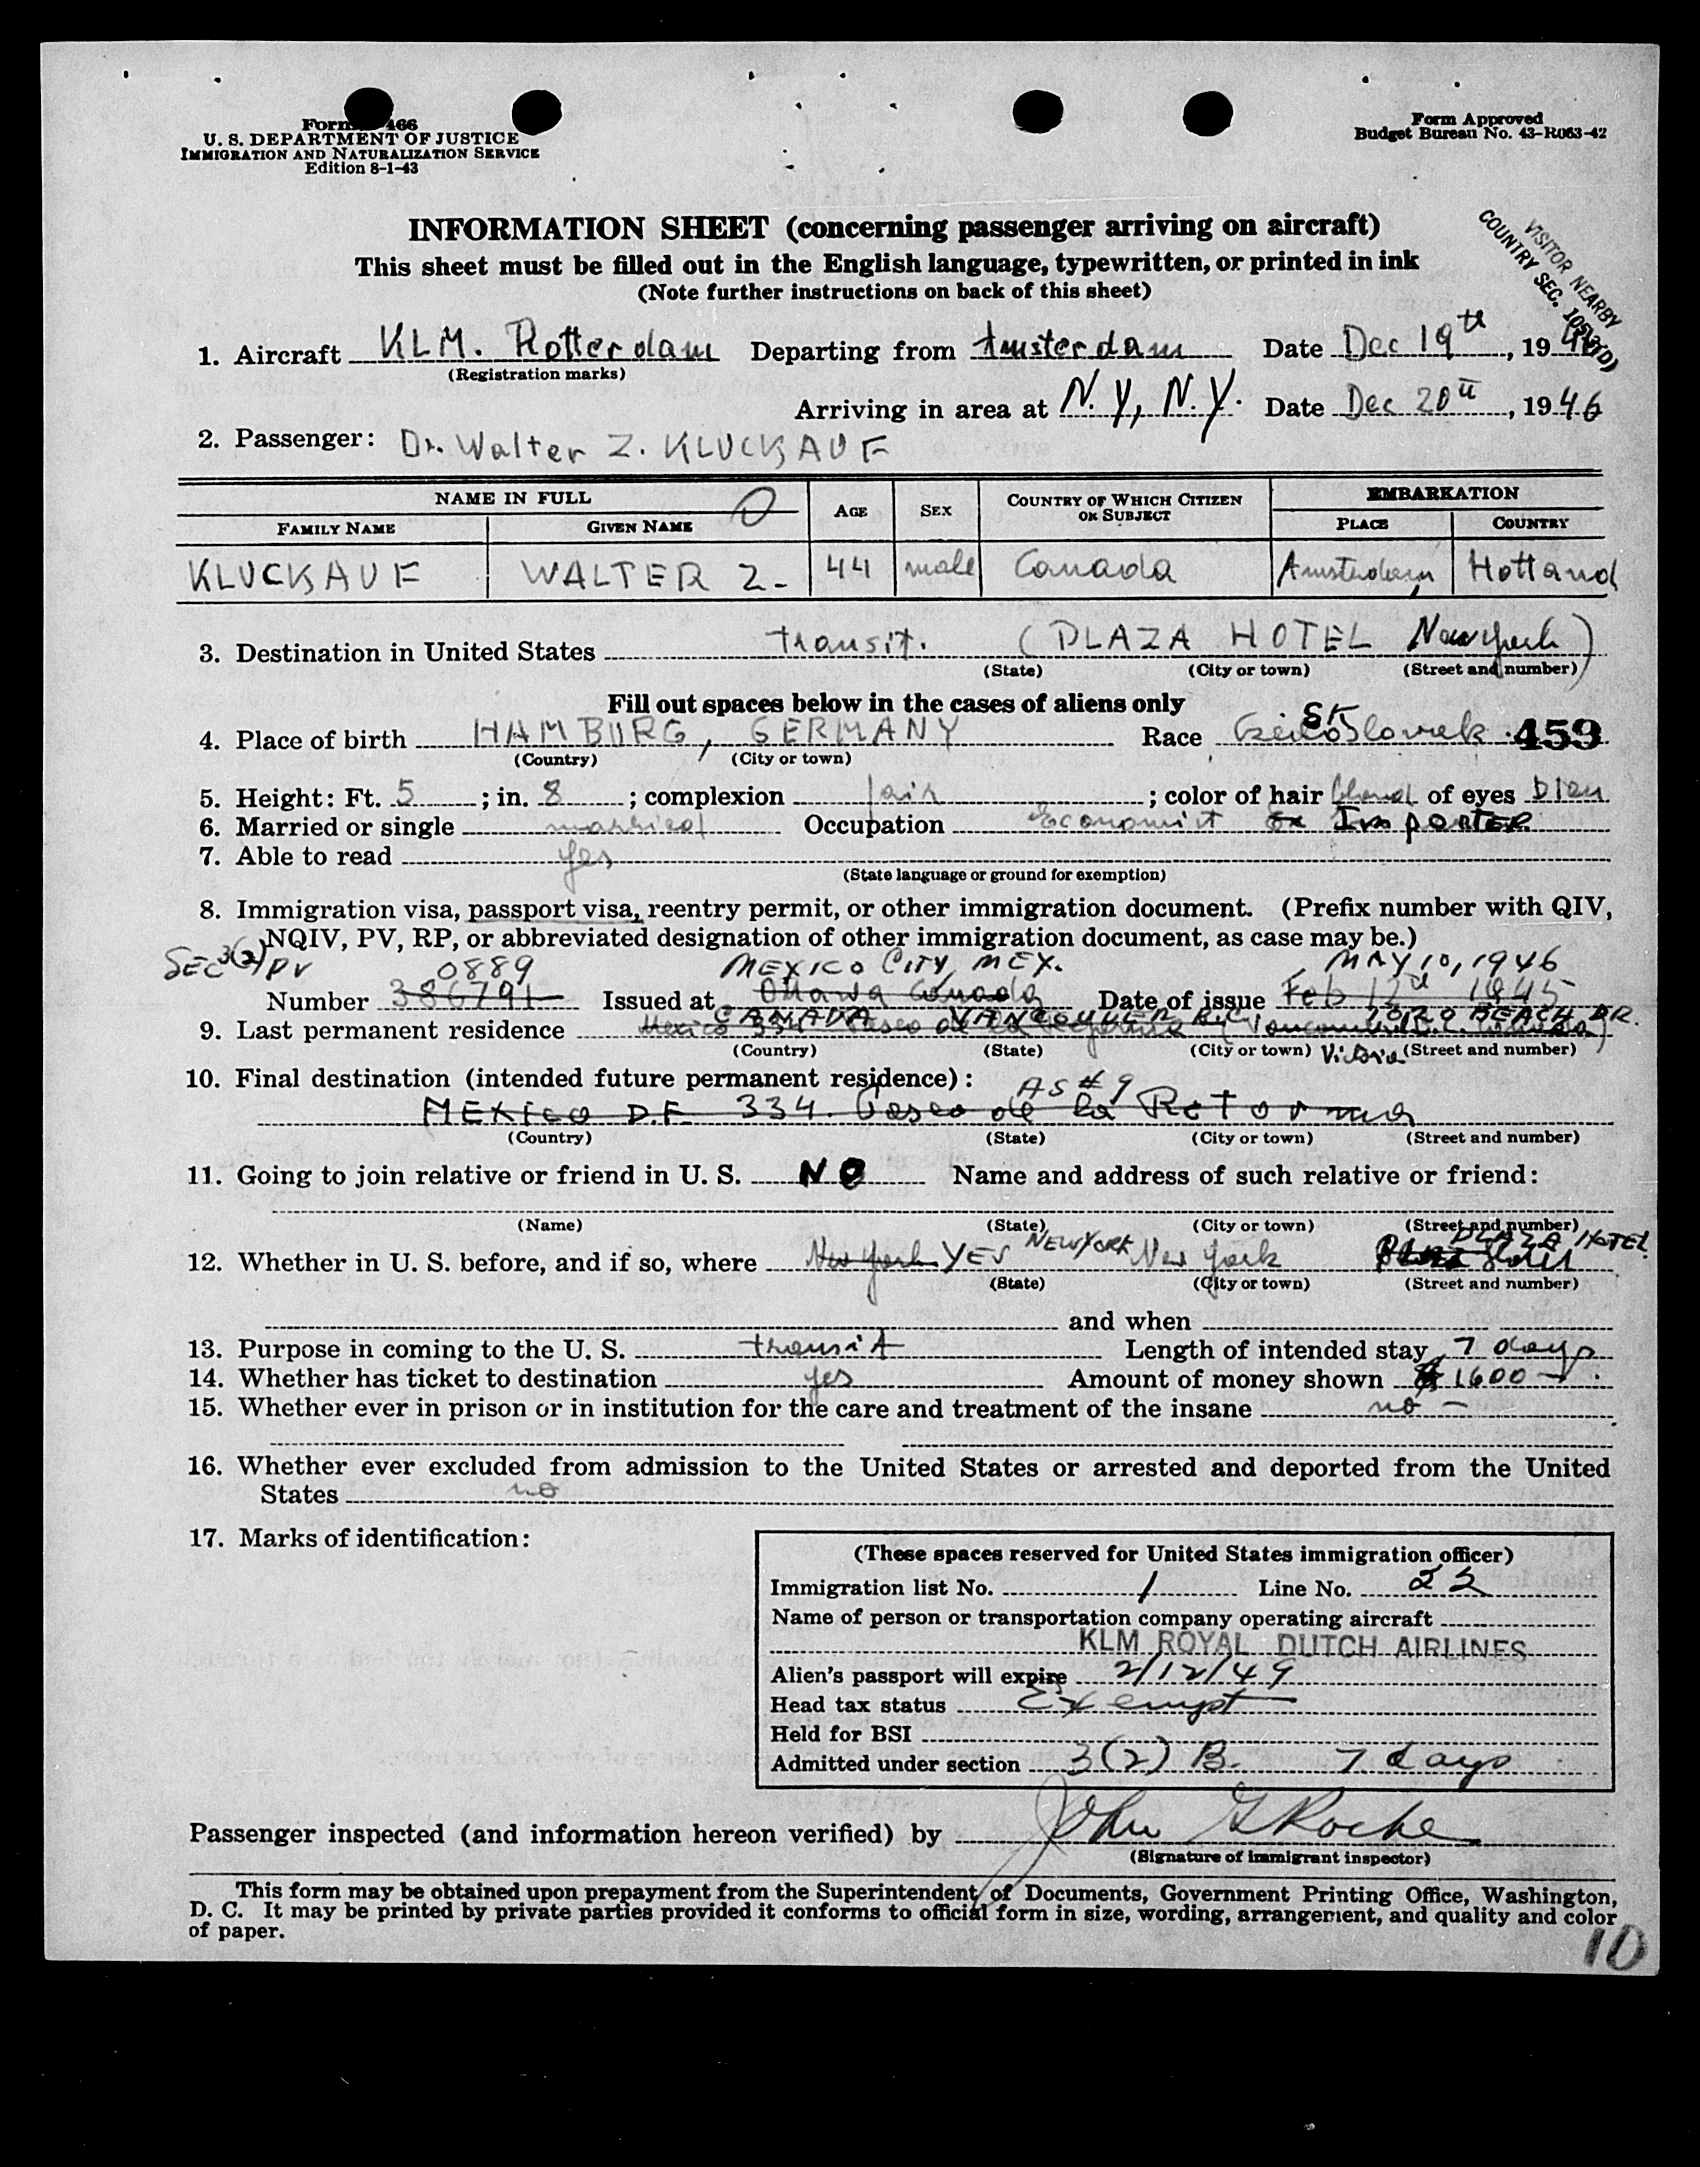 Form 466
U. S. DEPARTMENT OF JUSTICE
IMMIGRATION AND NATURALIZATION SERVICE
Edition 8-1-43
Form Approved
Budget Bureau No. 43-R063-42
VISITOR NEARBY
COUNTRY SEC.
INFORMATION SHEET (concerning passenger arriving on aircraft)
This sheet must be filled out in the English language, typewritten, or printed in ink
(Note further instructions on back of this sheet)
1. Aircraft KLM. Rotterdam Departing from Amsterdam Date Dec 19th, 1946
(Registration marks)
Arriving in area at N.Y, N.Y. Date Dec 20th, 1946
2. Passenger: Dr. Walter Z. KLUCKAUF
NAME IN FULL AGE SEX COUNTRY OF WHICH CITIZEN OR SUBJECT EMBARKATION
FAMILY NAME GIVEN NAME PLACE COUNTRY
KLUCKAUF WALTER Z- 44 male Canada Amsterdam Holland
3. Destination in United States transit. (PLAZA HOTEL New York)
(State) (City or town) (Street and number)
Fill out spaces below in the cases of aliens only
4. Place of birth HAMBURG, GERMANY Race 459
(Country) (City or town)
5. Height: Ft. 5; in. 8; complexion fair; color of hair blond of eyes
6. Married or single married Occupation Economist Ex IMPORTER
7. Able to read yes
(State language or ground for exemption)
8. Immigration visa, passport visa, reentry permit, or other immigration document. (Prefix number with QIV,
NQIV, PV, RP, or abbreviated designation of other immigration document, as case may be.)
SEC 3(2) PV 0889 MEXICO CITY, MEX. MAY 10, 1946
Number 386791 Issued at Ottawa Canada Date of issue Feb 12th 1945
CANADA VANCOUVER B.C. BEACH DR.
9. Last permanent residence Mexico 334 Paseo de la Reforma
(Country) (State) (City or town) Victoria (Street and number)
10. Final destination (intended future permanent residence): AS # 9
MEXICO D.F. 334. Paseo de la Reforma
(Country) (State) (City or town) (Street and number)
11. Going to join relative or friend in U. S. NO Name and address of such relative or friend:
(Name) (State) (City or town) (Street and number)
PLAZA HOTEL
12. Whether in U. S. before, and if so, where New York YES NEW YORK New York
(State) (City or town) (Street and number)
and when
13. Purpose in coming to the U. S. transit Length of intended stay 7 days
14. Whether has ticket to destination yes Amount of money shown $ 1600
15. Whether ever in prison or in institution for the care and treatment of the insane no -
16. Whether ever excluded from admission to the United States or arrested and deported from the United
States no
17. Marks of identification:
(These spaces reserved for United States immigration officer)
Immigration list No. 1 Line No. 22
Name of person or transportation company operating aircraft
KLM ROYAL DUTCH AIRLINES
Alien's passport will expire 2/12/49
Head tax status Exempt
Held for BSI
Admitted under section 3(2) B. 7 days
Passenger inspected (and information hereon verified) by John G Roche
(Signature of immigrant inspector)
This form may be obtained upon prepayment from the Superintendent of Documents, Government Printing Office, Washington,
D. C. It may be printed by private parties provided it conforms to official form in size, wording, arrangement, and quality and color
of paper.
10